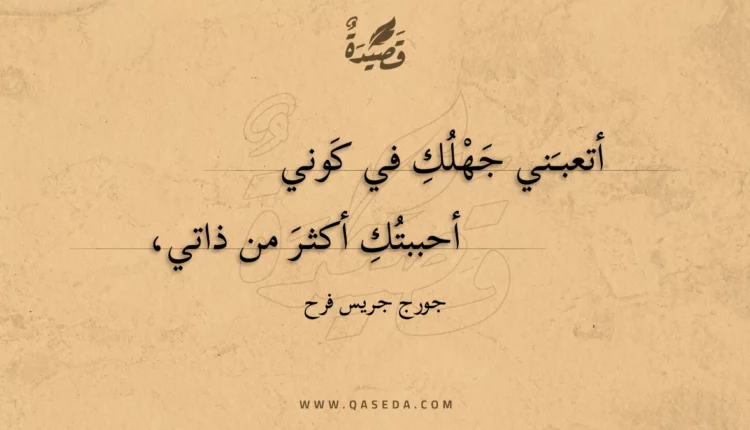 قَصِيدَةٌ
أتعبَني جَهْلُكِ في كَوني
أحببتُكِ أكثرَ من ذاتي،
جورج جريس فرح
WWW.QASEDA.COM